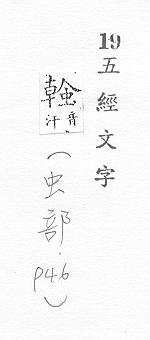 19 五經文字
螒音汗
（虫部．p46）